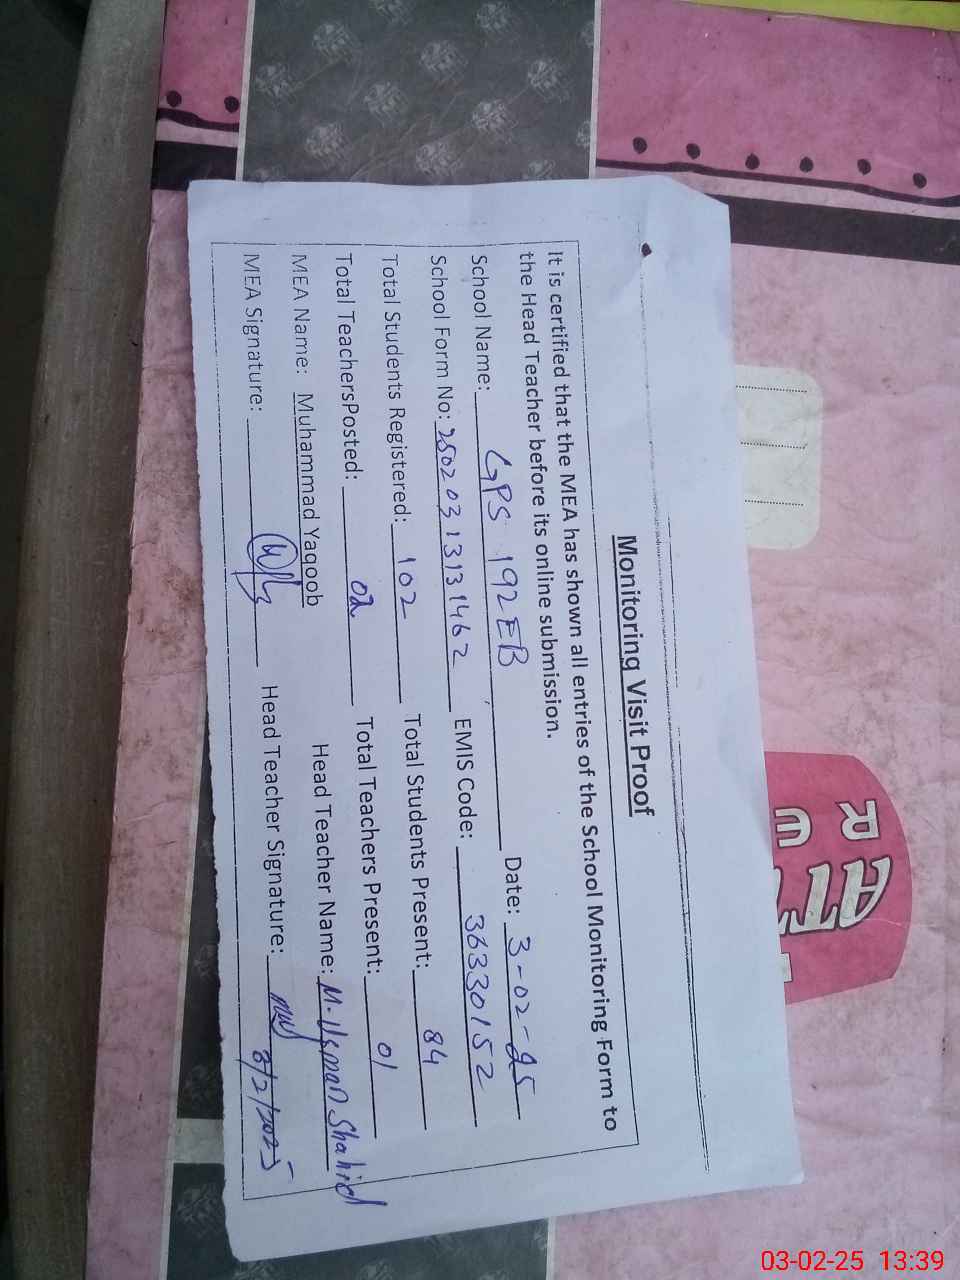 Monitoring Visit Proof
It is certified that the MEA has shown all entries of the School Monitoring Form to
the Head Teacher before its online submission.
School Name: GPS 192 EB Date: 3-02-25
School Form No: 25020313131462 EMIS Code: 36330152
Total Students Registered: 102 Total Students Present: 84
Total TeachersPosted: 02 Total Teachers Present: 01
MEA Name: Muhammad Yaqoob Head Teacher Name: M. Usman Shahid
MEA Signature: Head Teacher Signature:
3/2/2025
03-02-25 13:39